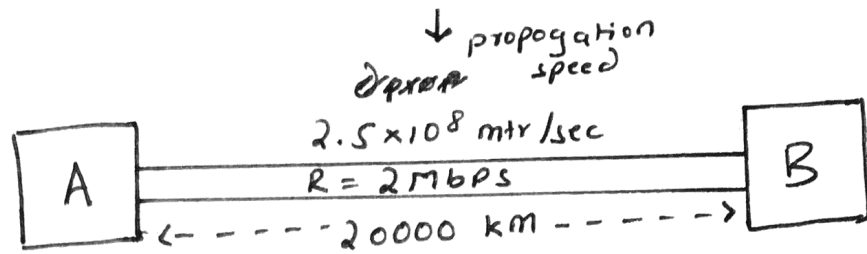 ↓ propogation
speed
2.5×10⁸ mtr/sec
A
R = 2Mbps
B
20000 km